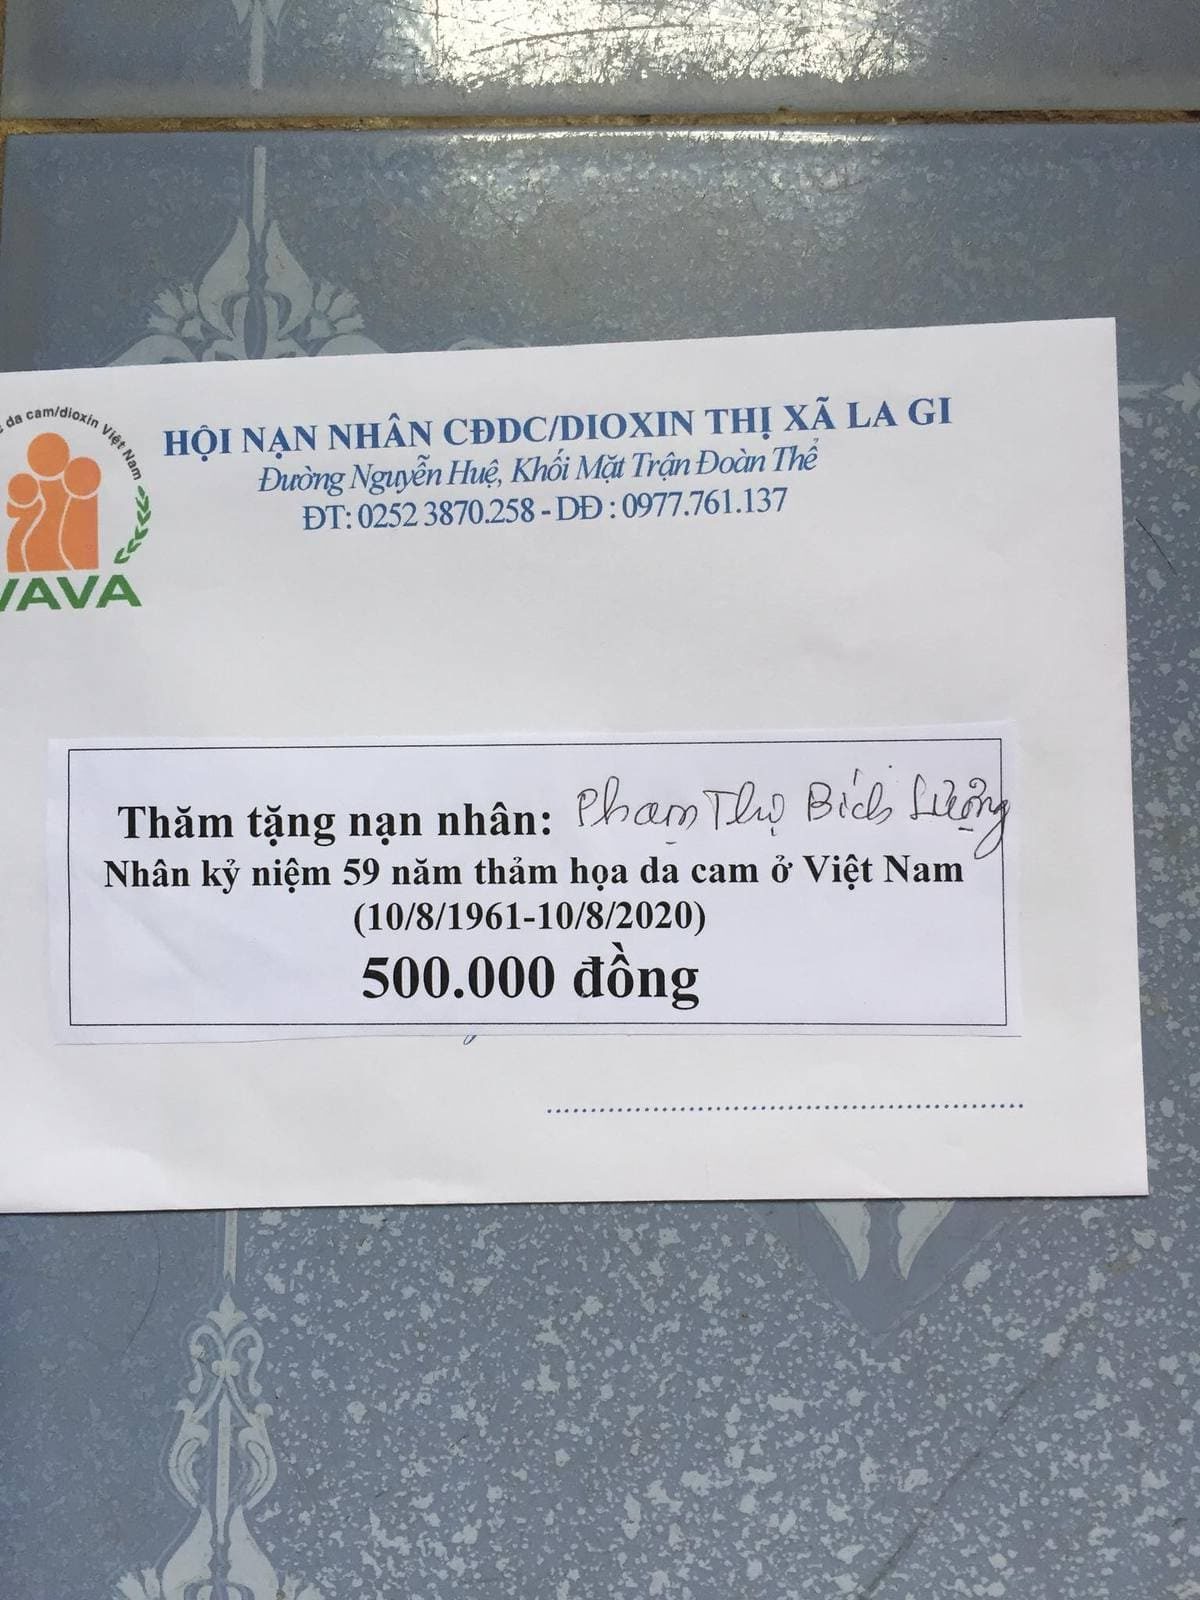 da cam/dioxin Việt Nam
VAVA
HỘI NẠN NHÂN CĐDC/DIOXIN THỊ XÃ LA GI
Đường Nguyễn Huệ, Khối Mặt Trận Đoàn Thể
ĐT: 0252 3870.258 - DĐ : 0977.761.137
Thăm tặng nạn nhân: Phạm Thị Bích Lượng
Nhân kỷ niệm 59 năm thảm họa da cam ở Việt Nam
(10/8/1961-10/8/2020)
500.000 đồng